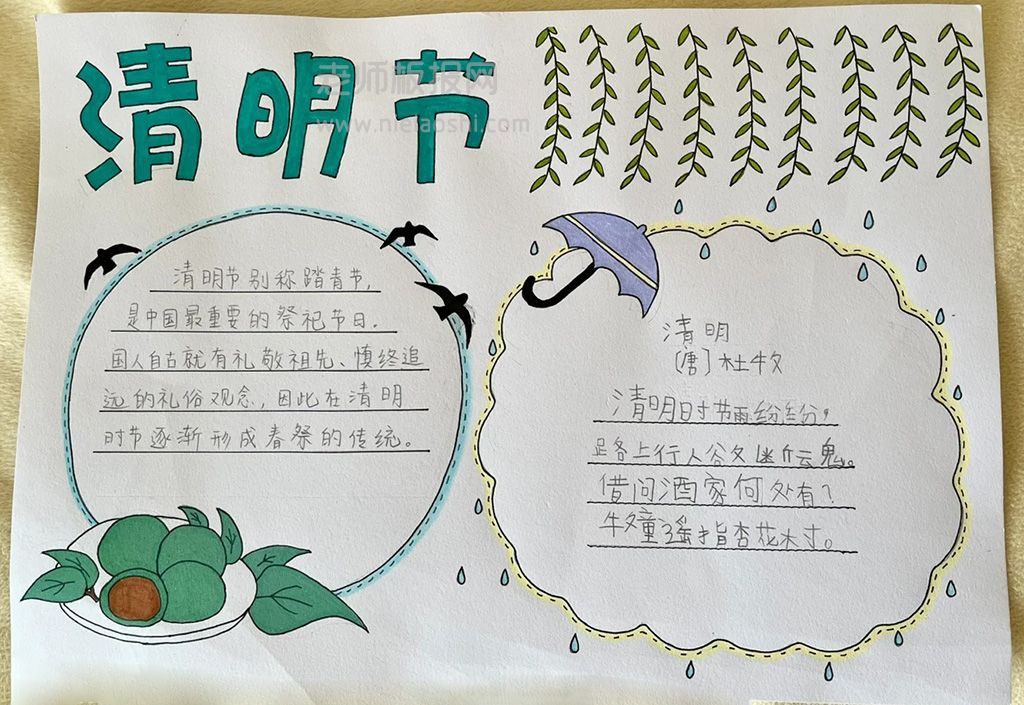 清明节
老师板报网
www.nielaoshi.com
清明节别称踏青节，
是中国最重要的祭祀节日。
国人自古就有礼敬祖先、慎终追
远的礼俗观念，因此在清明
时节逐渐形成春祭的传统。
清明
〔唐〕杜牧
清明时节雨纷纷，
路上行人欲断魂。
借问酒家何处有？
牧童遥指杏花村。